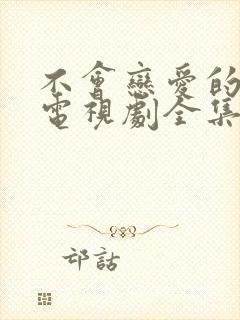 不會戀愛的
電視劇全集
邙話